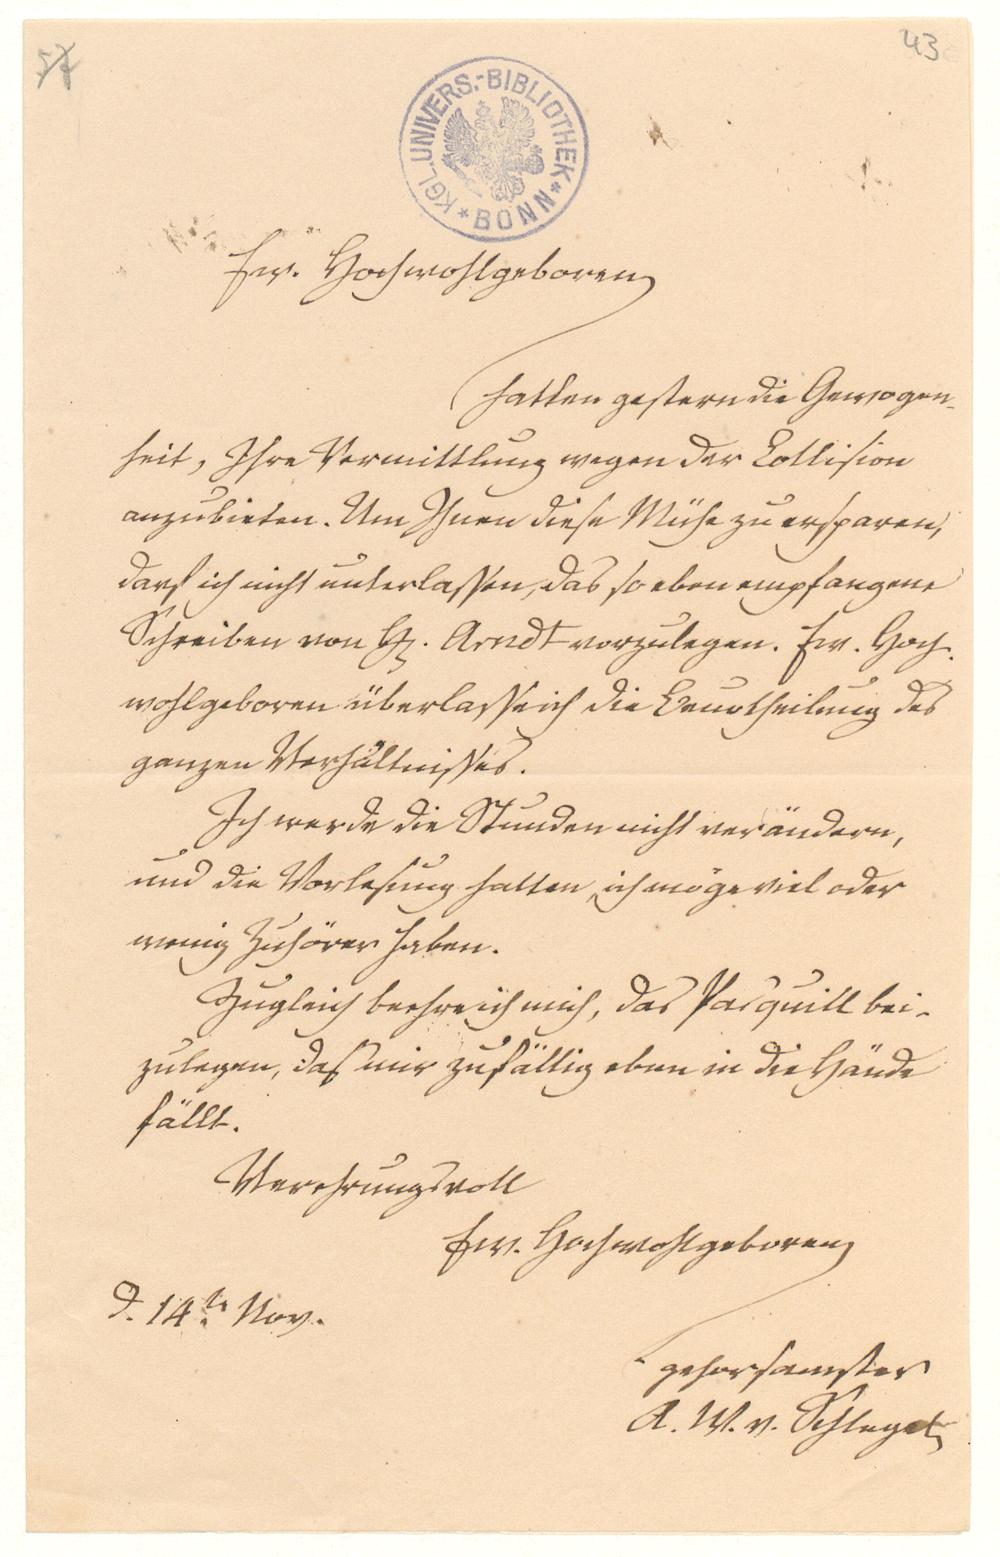 57
43
KGL. UNIVERS.-BIBLIOTHEK * BONN *
Ew. Hochwohlgeboren
hatten gestern die Gewogen-
heit, Ihre Vermittlung wegen der Collision
anzubieten. Um Ihnen diese Mühe zu ersparen,
darf ich nicht unterlassen, das so eben empfangene
Schreiben von H. Arndt vorzulegen. Ew. Hoch-
wohlgeboren überlasse ich die Beurtheilung des
ganzen Verhältnisses.
Ich werde die Stunden nicht verändern,
und die Vorlesung halten, ich möge viel oder
wenig Zuhörer haben.
Zugleich beehre ich mich, das Pasquill bei-
zulegen, das mir zufällig eben in die Hände
fällt.
Verehrungsvoll
Ew. Hochwohlgeboren
d. 14te Nov.
gehorsamster
A. W. v. Schlegel